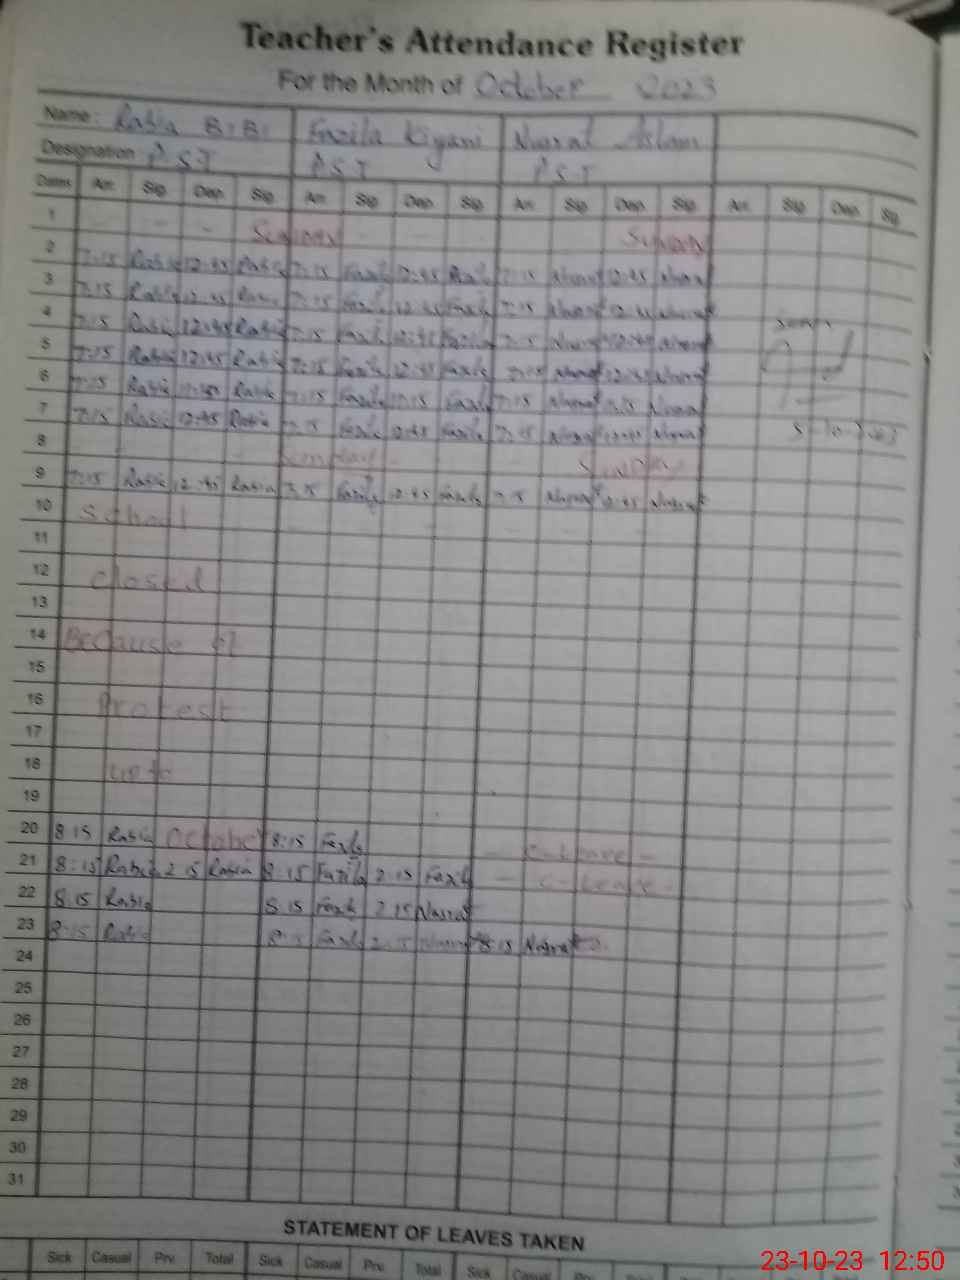 Teacher's Attendance Register
For the Month of October 2023
Name: Rabia BiBi Fazila Kiyani Nusrat Aslam
Designation P.S.T P.S.T P.S.T
Dates Arr. Sig. Dep. Sig. Arr. Sig. Dep. Sig. Arr. Sig. Dep. Sig. Arr. Sig. Dep. Sig.
1 Sunday Sunday
2 7:15 Rabia 12:45 Rabia 7:15 Fazila 12:45 Fazila 7:15 Nusrat 12:45 Nusrat
3 7:15 Rabia 12:45 Rabia 7:15 Fazila 12:45 Fazila 7:15 Nusrat 12:45 Nusrat
4 7:15 Rabia 12:45 Rabia 7:15 Fazila 12:45 Fazila 7:15 Nusrat 12:45 Nusrat
5 7:15 Rabia 12:45 Rabia 7:15 Fazila 12:45 Fazila 7:15 Nusrat 12:45 Nusrat
6 7:15 Rabia Rabia 7:15 Fazila Fazila 7:15 Nusrat Nusrat
7 7:15 Rabia 12:45 Rabia 7:15 Fazila 12:45 Fazila 7:15 Nusrat 12:45 Nusrat
8 Sunday Sunday
9 7:15 Rabia 12:45 Rabia 7:15 Fazila 12:45 Fazila 7:15 Nusrat 12:45 Nusrat
10 School
11
12 closed
13
14 Because of
15
16 Protest
17
18 up to
19
20 8:15 Rabia October 8:15 Fazila C-Leave
21 8:15 Rabia 2:15 Rabia 8:15 Fazila 2:15 Fazila C-Leave
22 8:15 Rabia 8:15 Fazila 2:15 Nusrat
23 8:15 Rabia 8:15 Fazila 2:15 Nusrat 8:15 Nusrat
24
25
26
27
28
29
30
31
STATEMENT OF LEAVES TAKEN
Sick Casual Prv. Total Sick Casual Prv. Total Sick Casual Prv.
23-10-23 12:50